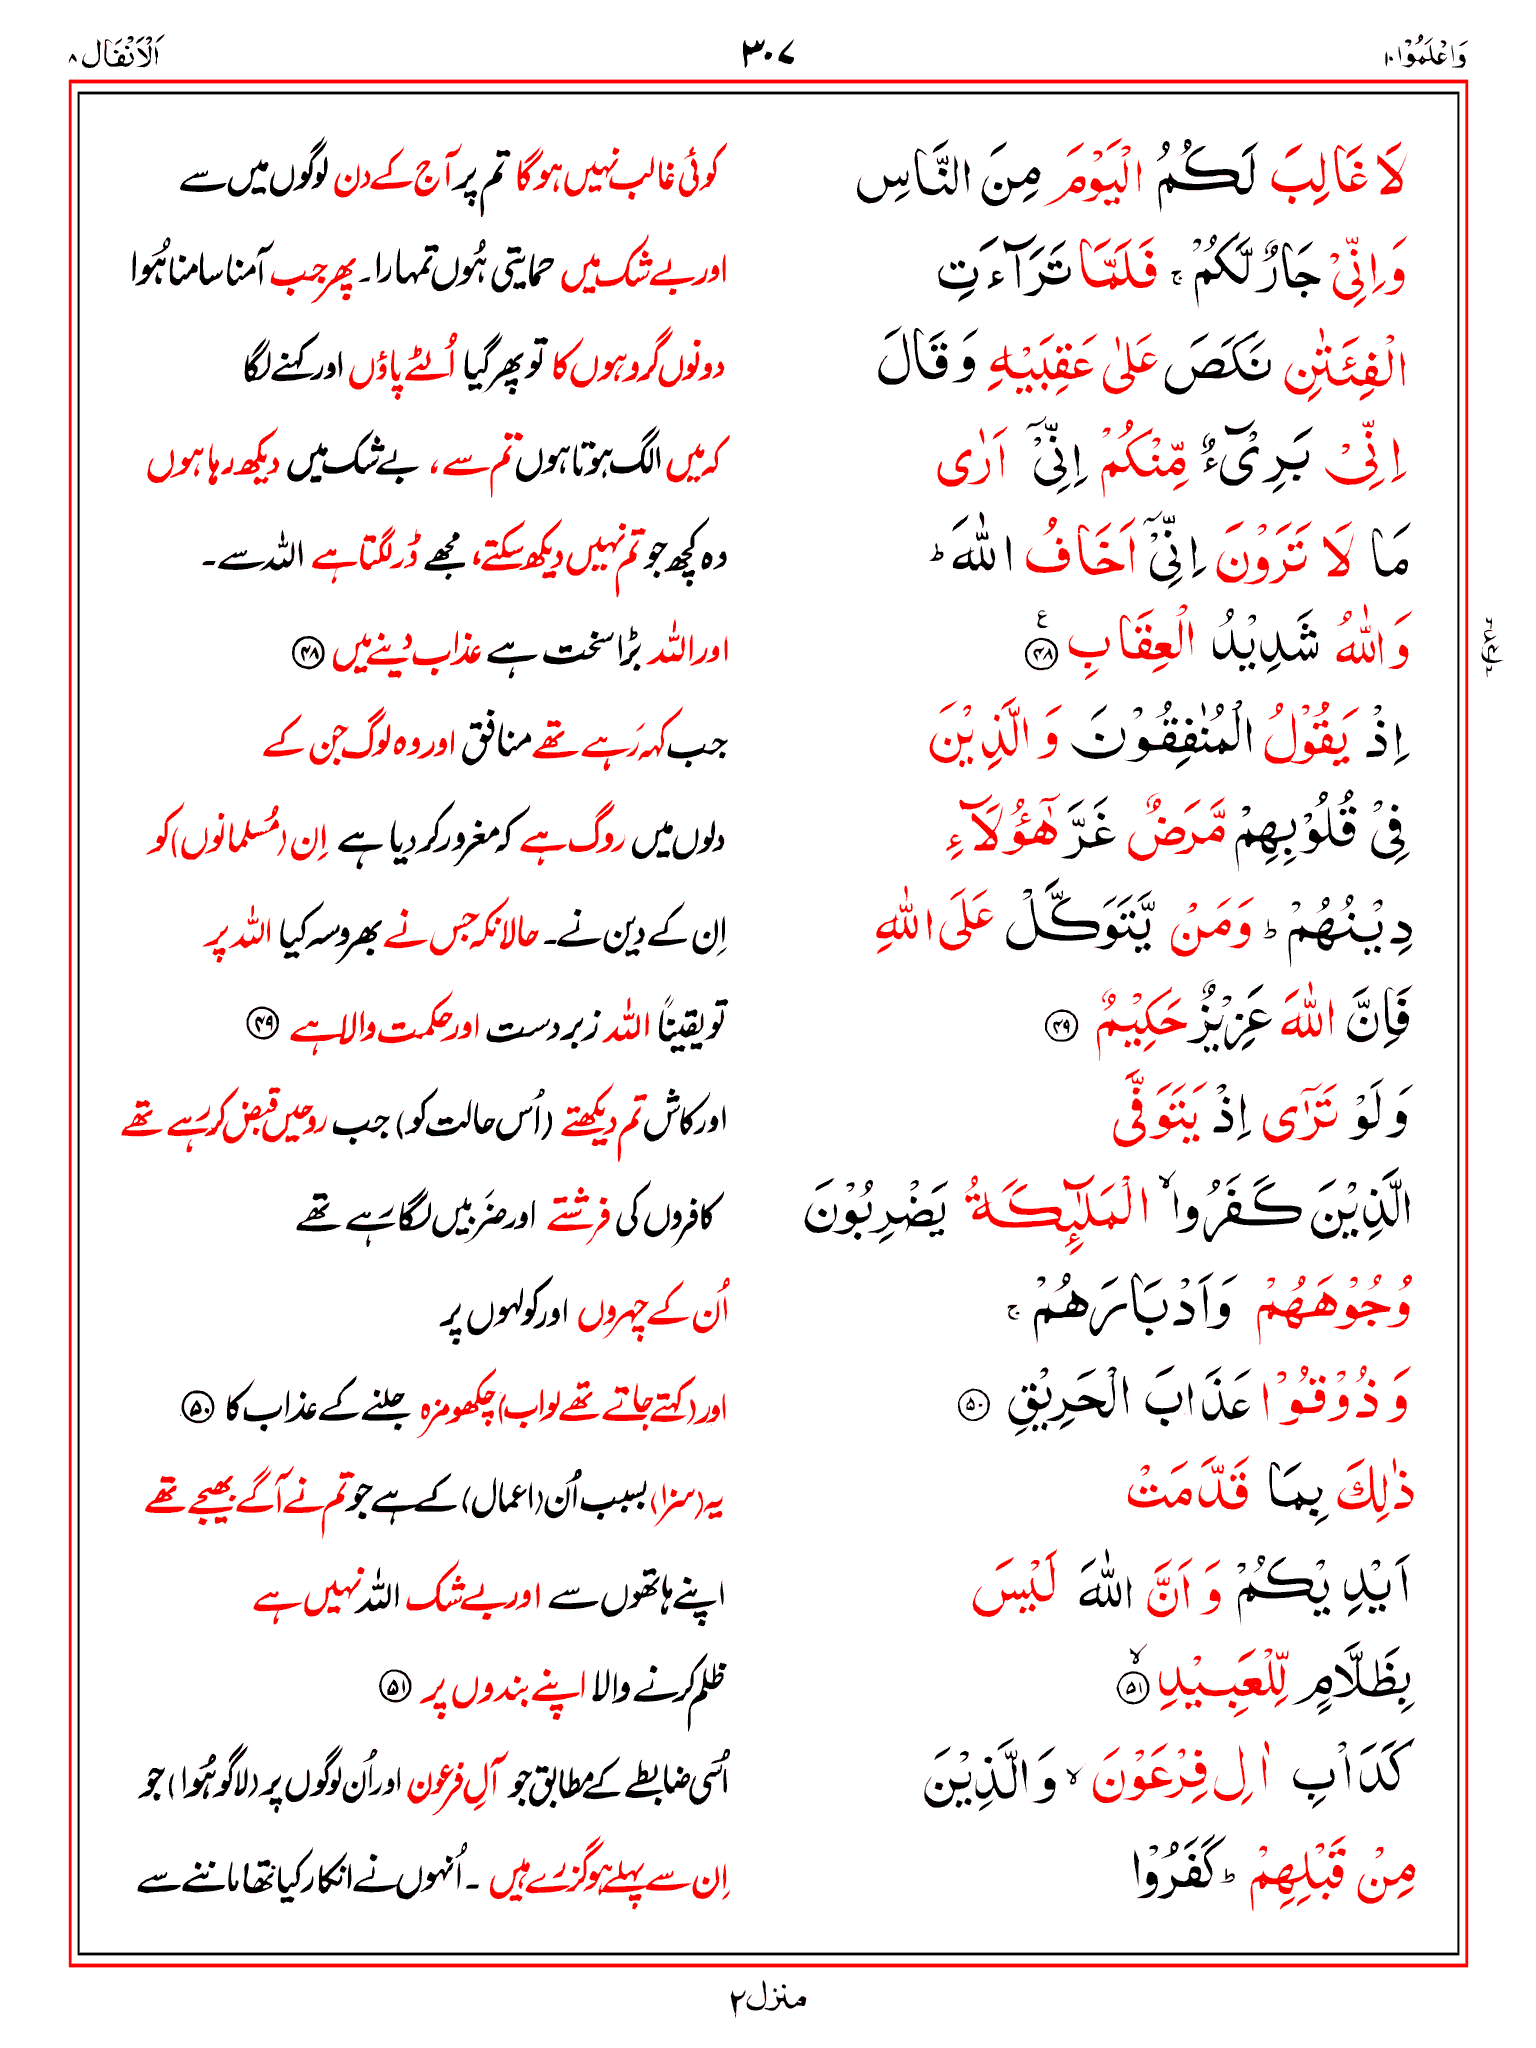 وَاعْلَمُوْۤا ۱۰
۳۰۷
اَلْاَنْفَال ۸
لَا غَالِبَ لَكُمُ الْيَوْمَ مِنَ النَّاسِ
کوئی غالب نہیں ہوگا تم پر آج کے دن لوگوں میں سے
وَاِنِّىْ جَارٌ لَّكُمْ ۚ فَلَمَّا تَرَآءَتِ
اور بے شک میں حمایتی ہُوں تمہارا۔ پھر جب آمنا سامنا ہُوا
الْفِئَتٰنِ نَكَصَ عَلٰى عَقِبَيْهِ وَقَالَ
دونوں گروہوں کا تو پھر گیا اُلٹے پاؤں اور کہنے لگا
اِنِّىْ بَرِىْٓءٌ مِّنْكُمْ اِنِّىْٓ اَرٰى
کہ میں الگ ہوتا ہوں تم سے، بے شک میں دیکھ رہا ہوں
مَا لَا تَرَوْنَ اِنِّىْٓ اَخَافُ اللّٰهَ ؕ
وہ کچھ جو تم نہیں دیکھ سکتے، مجھے ڈر لگتا ہے اللہ سے۔
وَاللّٰهُ شَدِيْدُ الْعِقَابِ ۴۸ ع
اور اللہ بڑا سخت ہے عذاب دینے میں ۴۸
اِذْ يَقُوْلُ الْمُنٰفِقُوْنَ وَالَّذِيْنَ
جب کہہ رَہے تھے منافق اور وہ لوگ جن کے
فِىْ قُلُوْبِهِمْ مَّرَضٌ غَرَّ هٰٓؤُلَآءِ
دلوں میں روگ ہے کہ مغرور کر دیا ہے اِن (مُسلمانوں) کو
دِيْنُهُمْ ؕ وَمَنْ يَّتَوَكَّلْ عَلَى اللّٰهِ
اِن کے دین نے۔ حالانکہ جس نے بھروسہ کیا اللہ پر
فَاِنَّ اللّٰهَ عَزِيْزٌ حَكِيْمٌ ۴۹
تو یقیناً اللہ زبردست اور حکمت والا ہے ۴۹
وَلَوْ تَرٰٓى اِذْ يَتَوَفَّى
اور کاش تم دیکھتے (اُس حالت کو) جب روحیں قبض کر رَہے تھے
الَّذِيْنَ كَفَرُوا ۙ الْمَلٰٓئِكَةُ يَضْرِبُوْنَ
کافروں کی فرشتے اور ضَربیں لگا رَہے تھے
وُجُوْهَهُمْ وَاَدْبَارَهُمْ ۚ
اُن کے چہروں اور کولہوں پر
وَذُوْقُوْا عَذَابَ الْحَرِيْقِ ۵۰
اور (کہتے جاتے تھے لو اب) چکھو مزہ جلنے کے عذاب کا ۵۰
ذٰلِكَ بِمَا قَدَّمَتْ
یہ (سزا) بسبب اُن (اعمال) کے ہے جو تم نے آگے بھیجے تھے
اَيْدِيْكُمْ وَاَنَّ اللّٰهَ لَيْسَ
اپنے ہاتھوں سے اور بے شک اللہ نہیں ہے
بِظَلَّامٍ لِّلْعَبِيْدِ ۵۱ ۙ
ظلم کرنے والا اپنے بندوں پر ۵۱
كَدَاْبِ اٰلِ فِرْعَوْنَ ۙ وَالَّذِيْنَ
اُسی ضابطے کے مطابق جو آلِ فرعون اور اُن لوگوں پر (لاگو ہُوا) جو
مِنْ قَبْلِهِمْ ؕ كَفَرُوْا
اِن سے پہلے ہو گزرے ہیں۔ اُنہوں نے انکار کیا تھا ماننے سے
منزل ۲